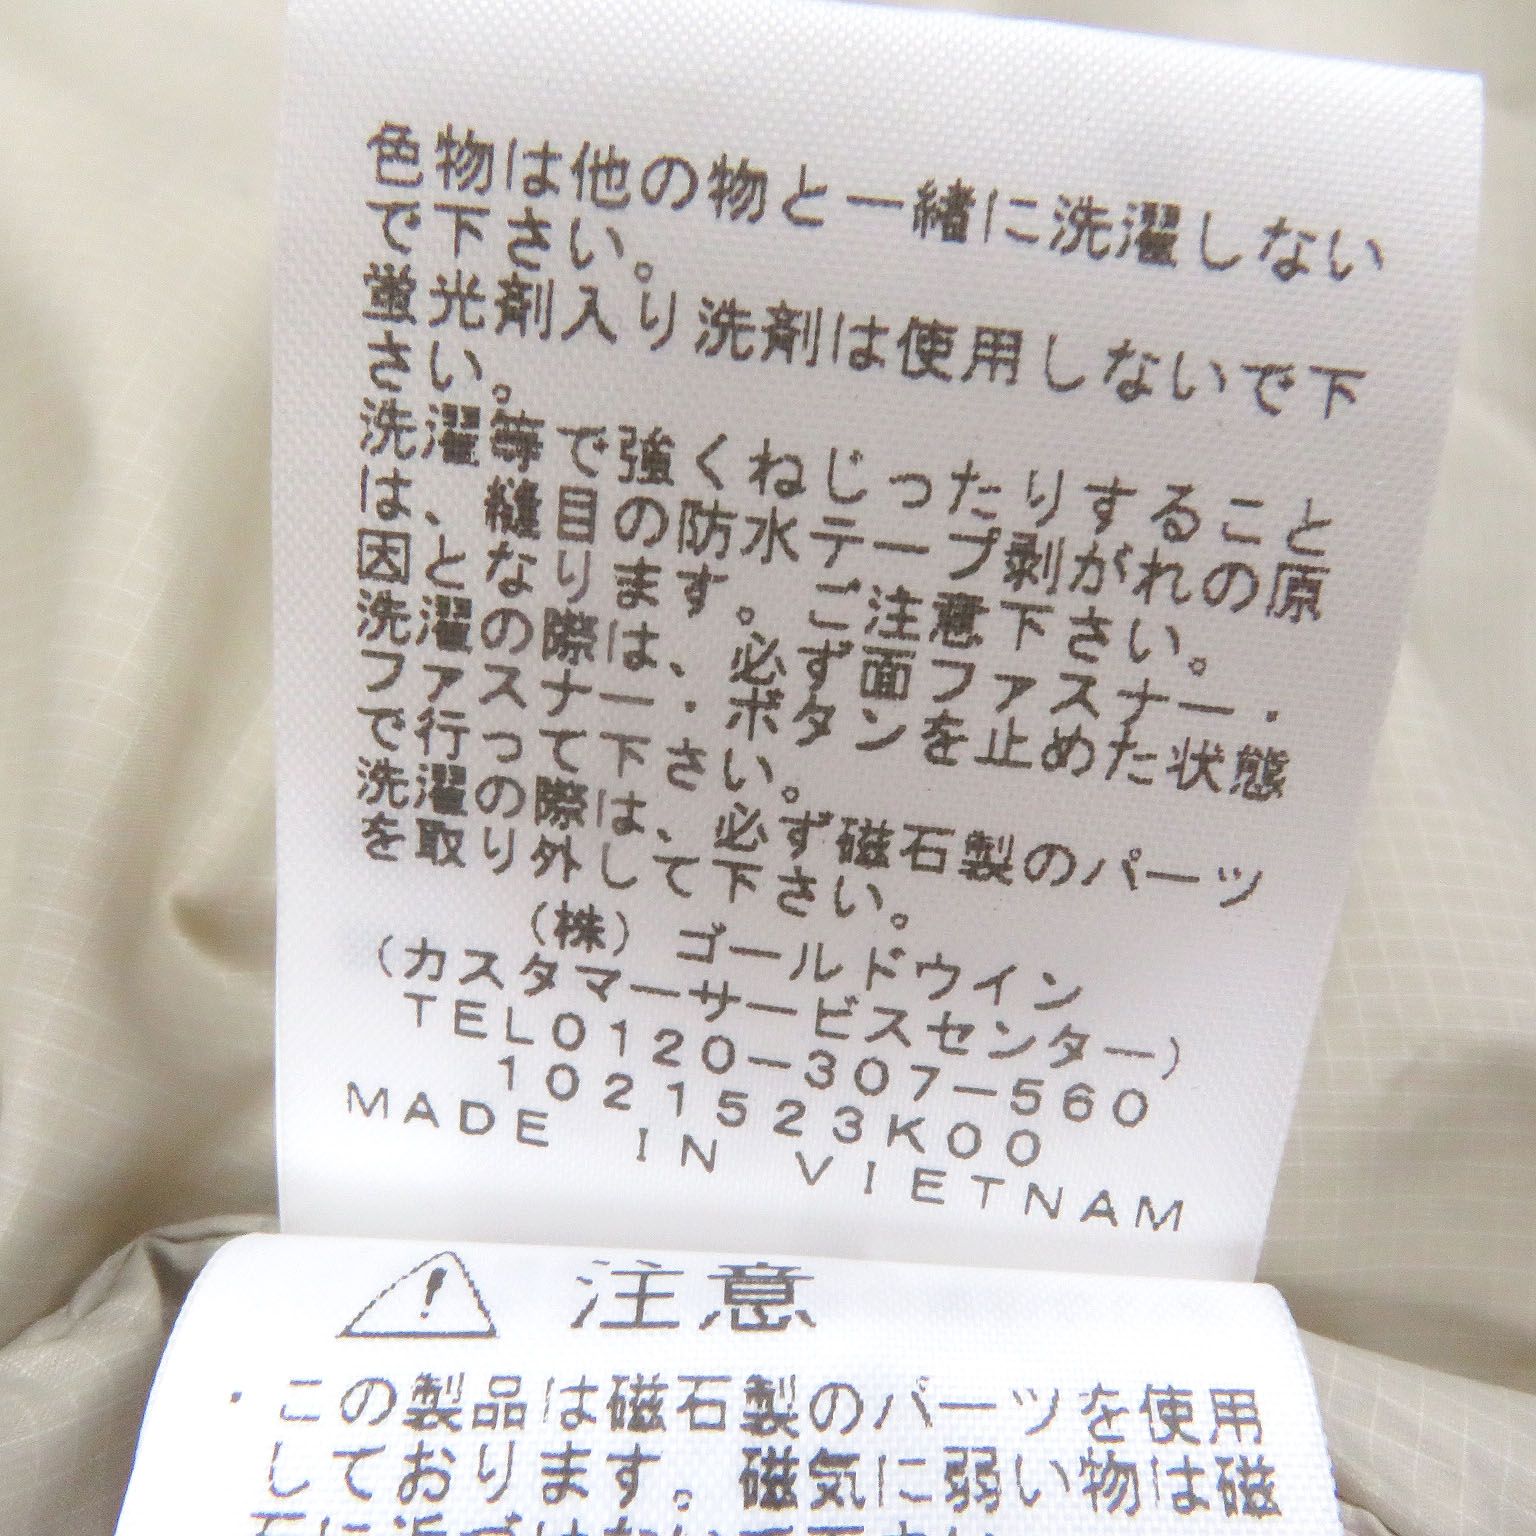 色物は他の物と一緒に洗濯しない
で下さい。
蛍光剤入り洗剤は使用しないで下
さい。
洗濯等で強くねじったりすること
は、縫目の防水テープ剥がれの原
因となります。ご注意下さい。
洗濯の際は、必ず面ファスナー・
ファスナー・ボタンを止めた状態
で行って下さい。
洗濯の際は、必ず磁石製のパーツ
を取り外して下さい。
(株)ゴールドウイン
(カスタマーサービスセンター)
TEL0120-307-560
1021523K00
MADE IN VIETNAM
注意
・この製品は磁石製のパーツを使用
しております。磁気に弱い物は磁
石に近づけないで下さい